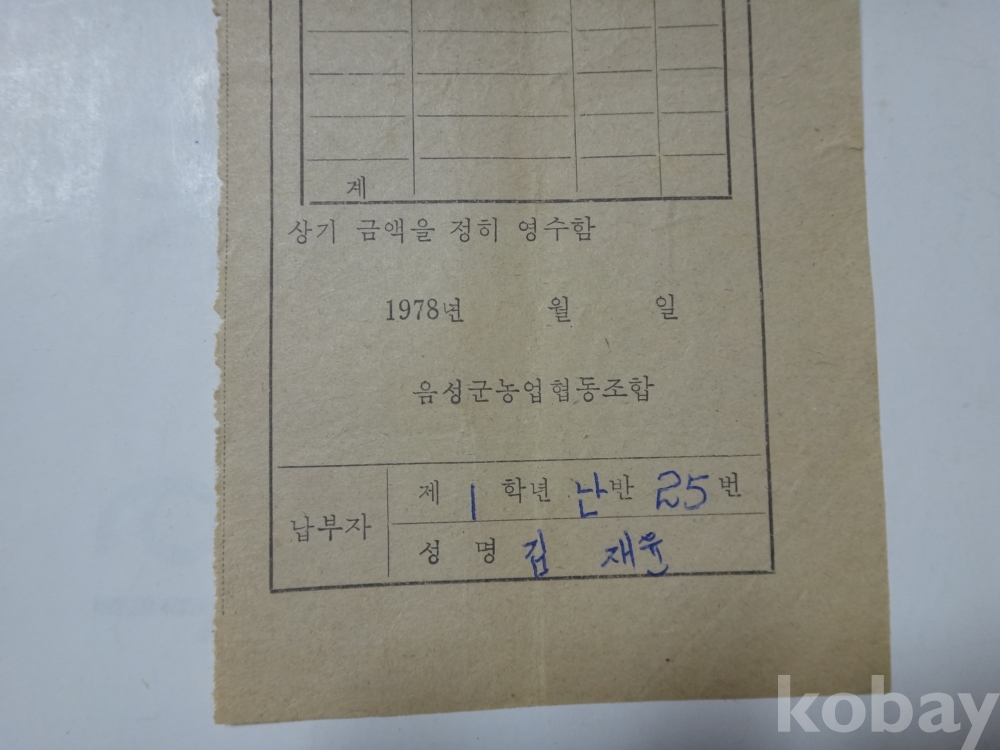 계
상기 금액을 정히 영수함
1978년 월 일
음성군농업협동조합
납부자
제 1 학년 난반 25번
성 명 김 재윤
kobay